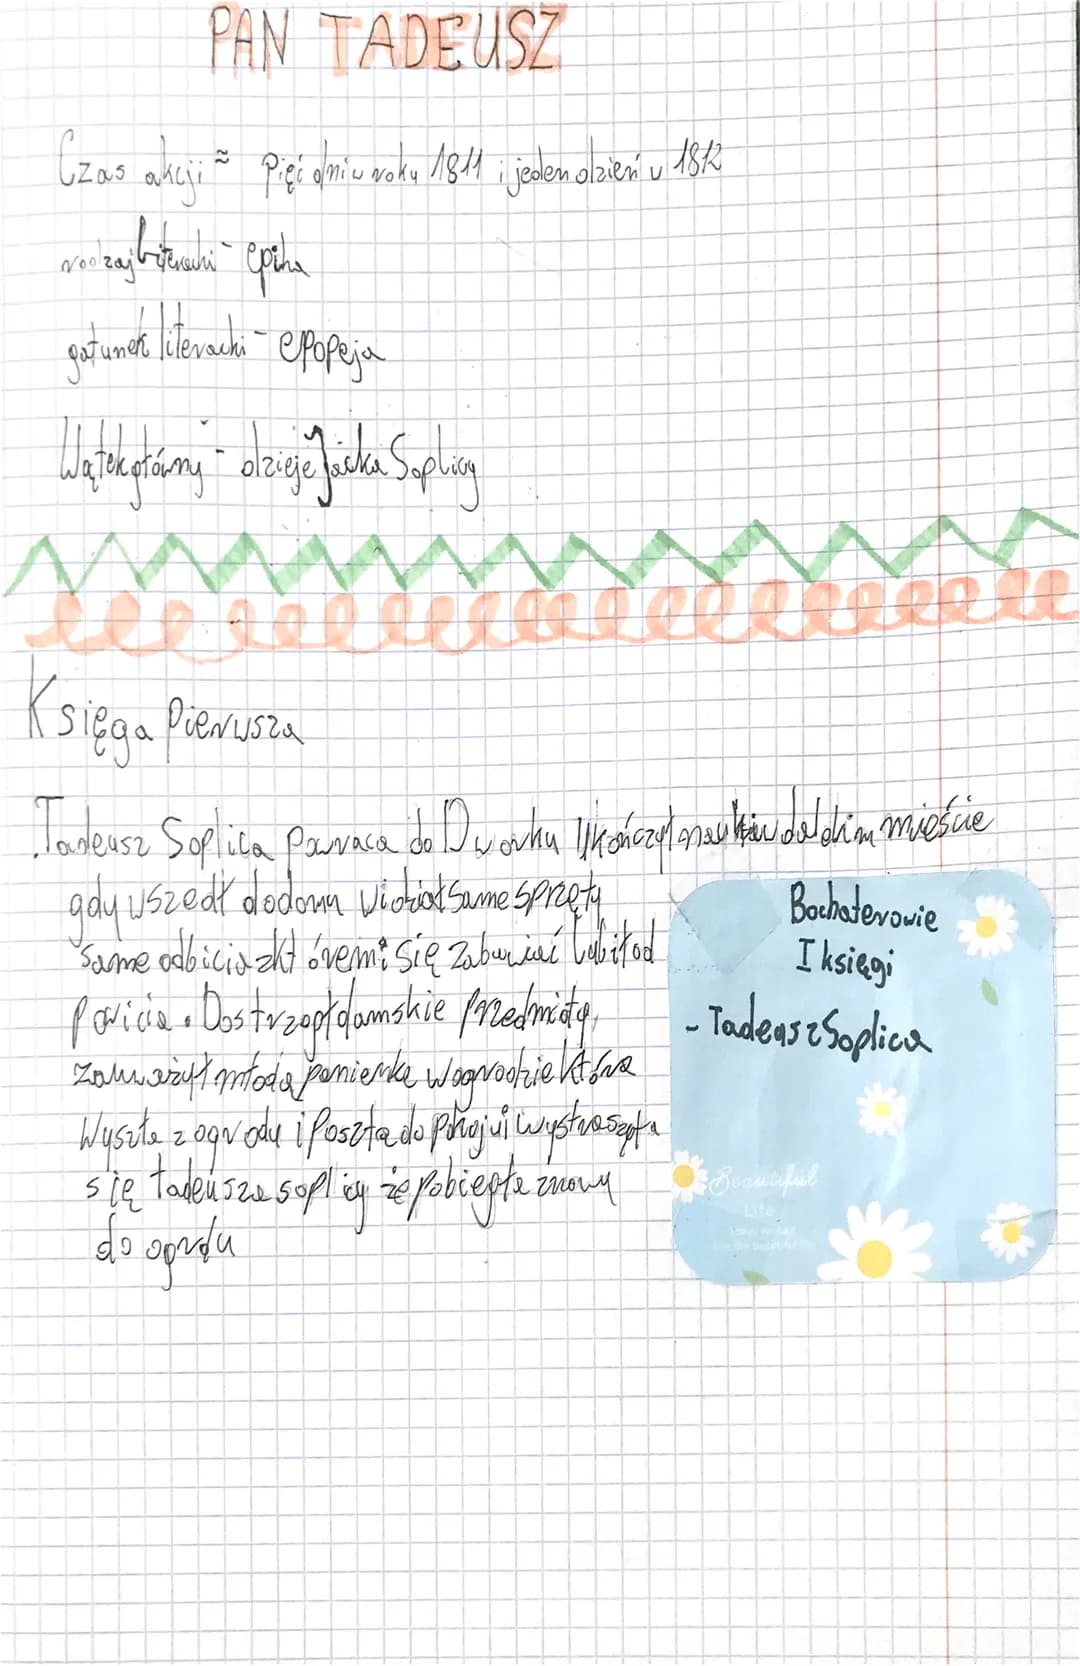 PAN TADEUSZ
Czas akcji ~ Pięć dni w roku 1811 i jeden dzień w 1812
rodzaj literacki - epika
gatunek literacki - epopeja
Wątek główny - dzieje Jacka Soplicy
Księga Pierwsza
Tadeusz Soplica powraca do Dworku Ukończył nauki w dalekim mieście
gdy wszedł do domu widział same sprzęty
same odbicia z któremi się zabawiać lubił od
powicia. Dostrzegł damskie przedmioty,
zauważył młodą panienkę w ogrodzie która
Wyszła z ogrodu i poszła do pokoju i wystraszyła
się tadeusza soplicy że pobiegła znowu
do ogrdu
Bochaterowie
I księgi
- Tadeusz Soplica
Beautiful
Life